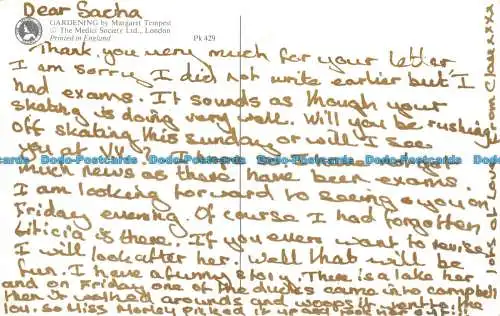 Dear Sacha
GARDENING by Margaret Tempest
© The Medici Society Ltd., London
Printed in England
Pk 429
Thank you very much for your letter
I am sorry I did not write earlier but I
had exams. It sounds as though your
skating is doing very well. Will you be rushing
off skating this sunday or will I see
you at
much news as there have been exams.
I am looking forward to seeing you on
Friday evening. Of course I had forgotten
Liticia is there. If you ever want to revise
I will look after her. Well that will be
fun. I have a funny story. There is a lake her
and on Friday one of the ducks came into
then it walked arounds and woops it went to the
lou. So Miss Morley picked it up and took her out!!!
love from Clare xxxx
Dodo-Postcards Dodo-Postcards Dodo-Postcards Dodo-Postcards